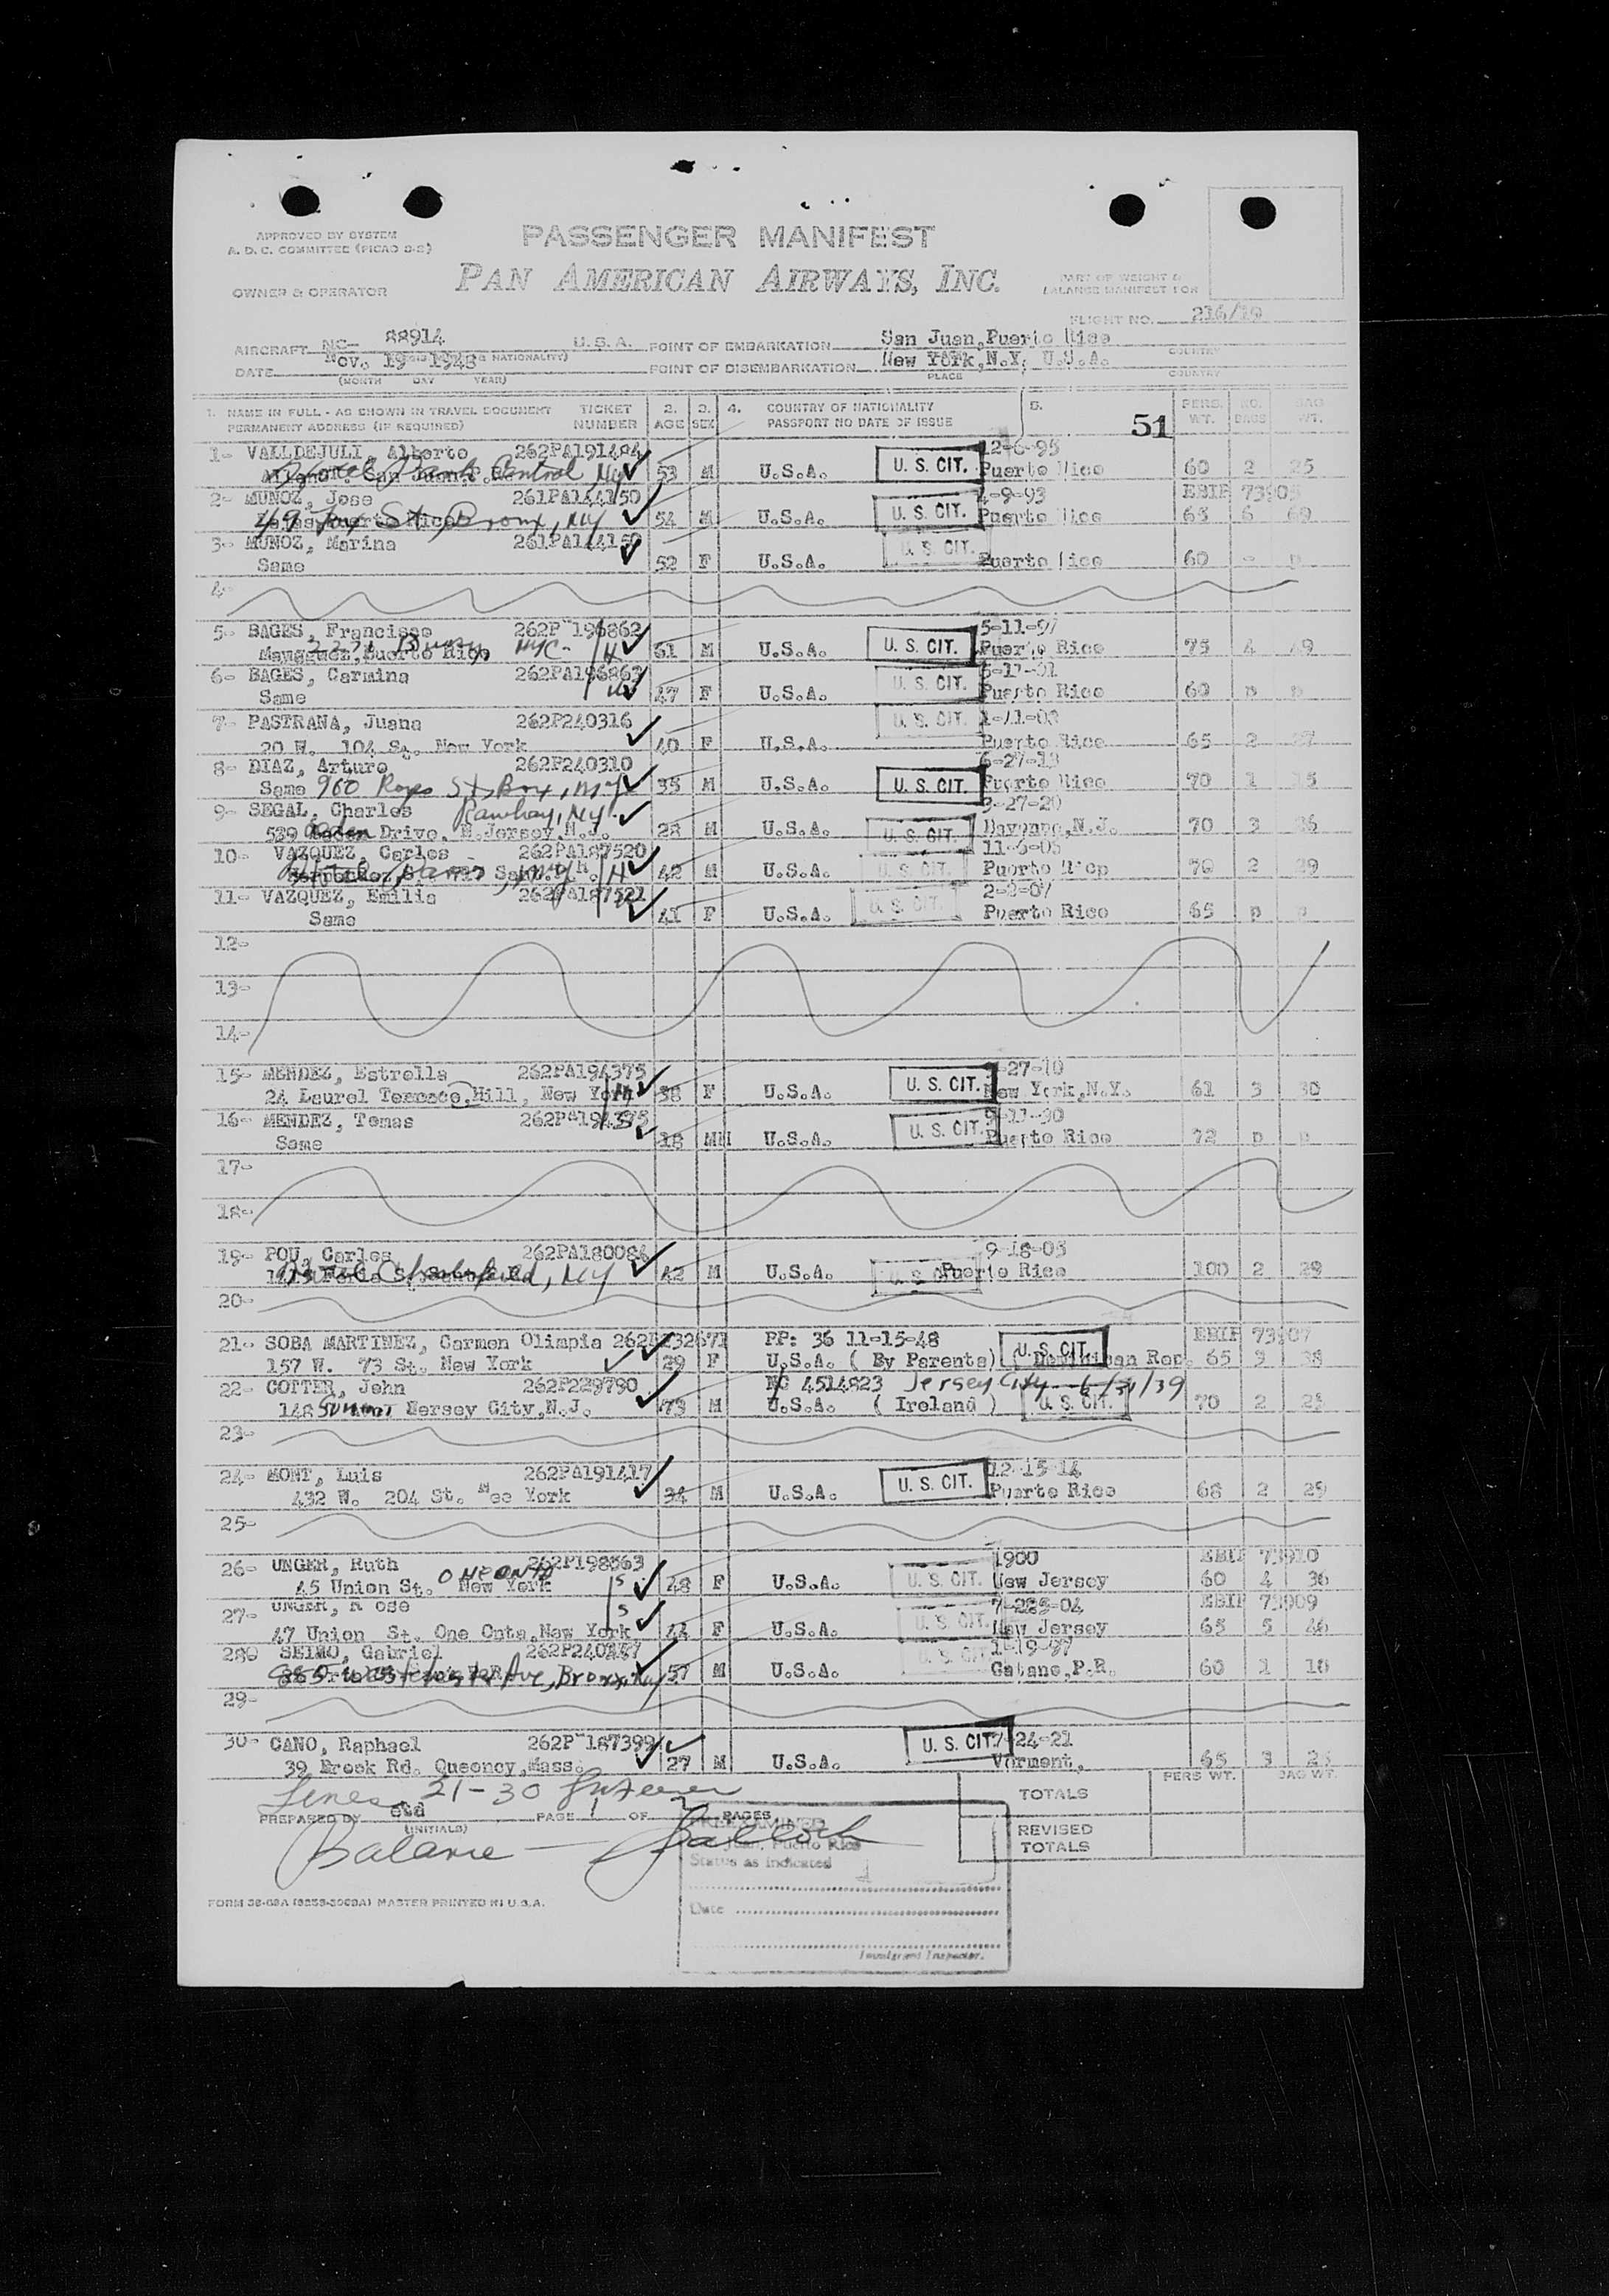 APPROVED BY SYSTEM
A. D. C. COMMITTEE (PICAO
PASSENGER MANIFEST
PAN AMERICAN AIRWAYS, INC.
OWNER & OPERATOR
PART OF WEIGHT &
BALANCE MANIFEST FOR
FLIGHT NO. 216/19
AIRCRAFT NC- 88914 U.S.A. POINT OF EMBARKATION San Juan, Puerto Rico
DATE Nov. 19 1948 NATIONALITY) POINT OF DISEMBARKATION New York, N.Y. U.S.A. COUNTRY
(MONTH DAY YEAR) PLACE COUNTRY
1. NAME IN FULL - AS SHOWN IN TRAVEL DOCUMENT TICKET 2. 3. 4. COUNTRY OF NATIONALITY 5. 51 PERS. NO. BAG
PERMANENT ADDRESS (IF REQUIRED) NUMBER AGE SEX PASSPORT NO DATE OF ISSUE WT. BAGS WT.
1- VALLDEJULI, Alberto 262PA191484 12-6-95
Central NY 53 M U.S.A. U. S. CIT. Puerto Rico 60 2 25
2- MUNOZ, Jose 261PA144150 4-9-93 EBIF
49 Fox St, Bronx, NY 54 M U.S.A. U. S. CIT. Puerto Rico 65 6 69
3- MUNOZ, Marina 261PA144150 U. S. CIT.
Same 52 F U.S.A. Puerto Rico 60 -
4-
5- BAGES, Francisco 262P 196862 5-11-97
Mayaguez, Puerto Rico NYC- H 61 M U.S.A. U. S. CIT. Puerto Rico 75 4
6- BAGES, Carmina 262PA196863
Same 47 F U.S.A. U. S. CIT. Puerto Rico 60 p p
7- PASTRANA, Juana 262P240316 U. S. CIT.
20 W. 104 St. New York 40 F U.S.A. Puerto Rico 65 2 27
8- DIAZ, Arturo 262P240310 6-27-13
Same 960 St, Bronx, NY 35 M U.S.A. U. S. CIT. Puerto Rico 70 1 15
9- SEGAL, Charles Rawhay, NY 3-27-20
539 Drive, N.Jersey, N.J. 28 M U.S.A. U. S. CIT. Bayonne, N.J. 70 3 36
10- VAZQUEZ, Carlos 262PA187520 11-6-05
H 42 M U.S.A. U. S. CIT. Puerto Rico 70 2 29
11- VAZQUEZ, Emilia 262PA187521 2-2-07
Same 41 F U.S.A. U. S. CIT. Puerto Rico 65 p p
12-
13-
14-
15- MENDEZ, Estrella 262PA194375 -27-10
24 Laurel Terrace Hill, New York 38 F U.S.A. U. S. CIT. New York, N.Y. 61 3 30
16- MENDEZ, Tomas 9-11-30
Same 18 MM U.S.A. U. S. CIT. Puerto Rico 72 p p
17-
18-
19- POU, Carlos 262PA180084 9-18-05
NY 42 M U.S.A. U. S. CIT. Puerto Rico 100 2 29
20-
21- SOBA MARTINEZ, Carmen Olimpia PP: 36 11-15-48 EBIF 73907
157 W. 73 St. New York 29 F U.S.A. ( By Parents) U. S. CIT. Dominican Rep. 65 3 38
22- COTTER, John 262P229790 NC 4514823 Jersey City 6/31/39
148 Jersey City, N.J. 73 M U.S.A. ( Ireland ) U. S. CIT. 70 2
23-
24- MONT, Luis 262PA191417 12-15-14
432 W. 204 St. New York 34 M U.S.A. U. S. CIT. Puerto Rico 68 2 29
25-
26- UNGER, Ruth 262P198563 1900 EBIF 73910
45 Union St. ONEONTA New York S 48 F U.S.A. U. S. CIT. New Jersey 60 4 36
27- UNGER, R ose S EBIF 73909
47 Union St. One Onta, New York 44 F U.S.A. U. S. CIT. New Jersey 65 5 46
280 SEIMO, Gabriel 1-19-97
Ave, Bronx, NY 57 M U.S.A. U. S. CIT. Catano, P.R. 60 1 10
29-
30- CANO, Raphael 262P 187399 7-24-21
39 Brook Rd. Queency, Mass. 27 M U.S.A. U. S. CIT. Vermont, 65 3
Lines 21-30 PERS WT. BAG WT.
TOTALS
PREPARED BY PAGE 1 OF PAGES
(INITIALS)
Balance -
REVISED
TOTALS
PREEXAMINED
San Juan, Puerto Rico
Status as indicated
Date
Immigrant Inspector.
MASTER PRINTED IN U.S.A.